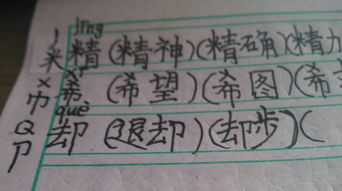 jīng
米 精 (精神)(精确)(精力
X xī
巾 希 (希望)(希图)(希
què
Q
卩 却 (退却)(却步)(